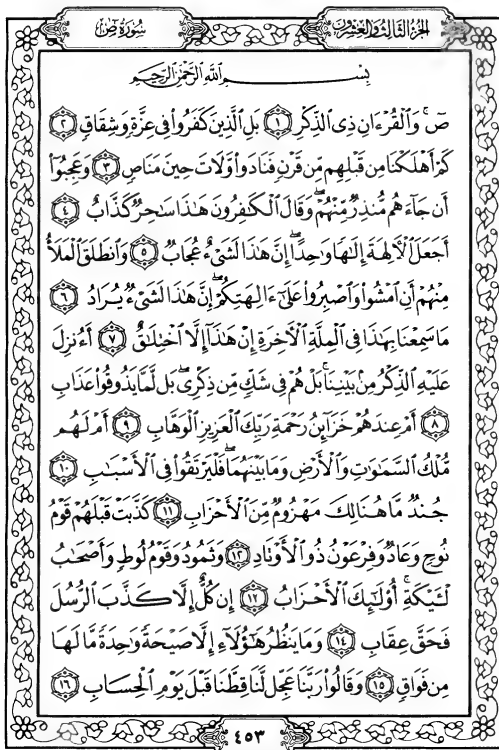 الجُزْءُ الثَّالِثُ وَالعِشْرُونَ
سُورَةُ صٓ
بِسْمِ ٱللَّهِ ٱلرَّحْمَٰنِ ٱلرَّحِيمِ
صٓ ۚ وَٱلْقُرْءَانِ ذِى ٱلذِّكْرِ ١ بَلِ ٱلَّذِينَ كَفَرُوا۟ فِى عِزَّةٍ وَشِقَاقٍ ٢
كَمْ أَهْلَكْنَا مِن قَبْلِهِم مِّن قَرْنٍ فَنَادَوا۟ وَّلَاتَ حِينَ مَنَاصٍ ٣ وَعَجِبُوٓا۟
أَن جَآءَهُم مُّنذِرٌ مِّنْهُمْ ۖ وَقَالَ ٱلْكَٰفِرُونَ هَٰذَا سَٰحِرٌ كَذَّابٌ ٤
أَجَعَلَ ٱلْءَالِهَةَ إِلَٰهًا وَٰحِدًا ۖ إِنَّ هَٰذَا لَشَىْءٌ عُجَابٌ ٥ وَٱنطَلَقَ ٱلْمَلَأُ
مِنْهُمْ أَنِ ٱمْشُوا۟ وَٱصْبِرُوا۟ عَلَىٰٓ ءَالِهَتِكُمْ ۖ إِنَّ هَٰذَا لَشَىْءٌ يُرَادُ ٦
مَا سَمِعْنَا بِهَٰذَا فِى ٱلْمِلَّةِ ٱلْءَاخِرَةِ إِنْ هَٰذَآ إِلَّا ٱخْتِلَٰقٌ ٧ أَءُنزِلَ
عَلَيْهِ ٱلذِّكْرُ مِنۢ بَيْنِنَا ۚ بَلْ هُمْ فِى شَكٍّ مِّن ذِكْرِى ۖ بَل لَّمَّا يَذُوقُوا۟ عَذَابِ
٨ أَمْ عِندَهُمْ خَزَآئِنُ رَحْمَةِ رَبِّكَ ٱلْعَزِيزِ ٱلْوَهَّابِ ٩ أَمْ لَهُم
مُّلْكُ ٱلسَّمَٰوَٰتِ وَٱلْأَرْضِ وَمَا بَيْنَهُمَا ۖ فَلْيَرْتَقُوا۟ فِى ٱلْأَسْبَٰبِ ١٠
جُندٌ مَّا هُنَالِكَ مَهْزُومٌ مِّنَ ٱلْأَحْزَابِ ١١ كَذَّبَتْ قَبْلَهُمْ قَوْمُ
نُوحٍ وَعَادٌ وَفِرْعَوْنُ ذُو ٱلْأَوْتَادِ ١٢ وَثَمُودُ وَقَوْمُ لُوطٍ وَأَصْحَٰبُ
لْـَٔيْكَةِ ۚ أُو۟لَٰٓئِكَ ٱلْأَحْزَابُ ١٣ إِن كُلٌّ إِلَّا كَذَّبَ ٱلرُّسُلَ
فَحَقَّ عِقَابِ ١٤ وَمَا يَنظُرُ هَٰٓؤُلَآءِ إِلَّا صَيْحَةً وَٰحِدَةً مَّا لَهَا
مِن فَوَاقٍ ١٥ وَقَالُوا۟ رَبَّنَا عَجِّل لَّنَا قِطَّنَا قَبْلَ يَوْمِ ٱلْحِسَابِ ١٦
٤٥٣